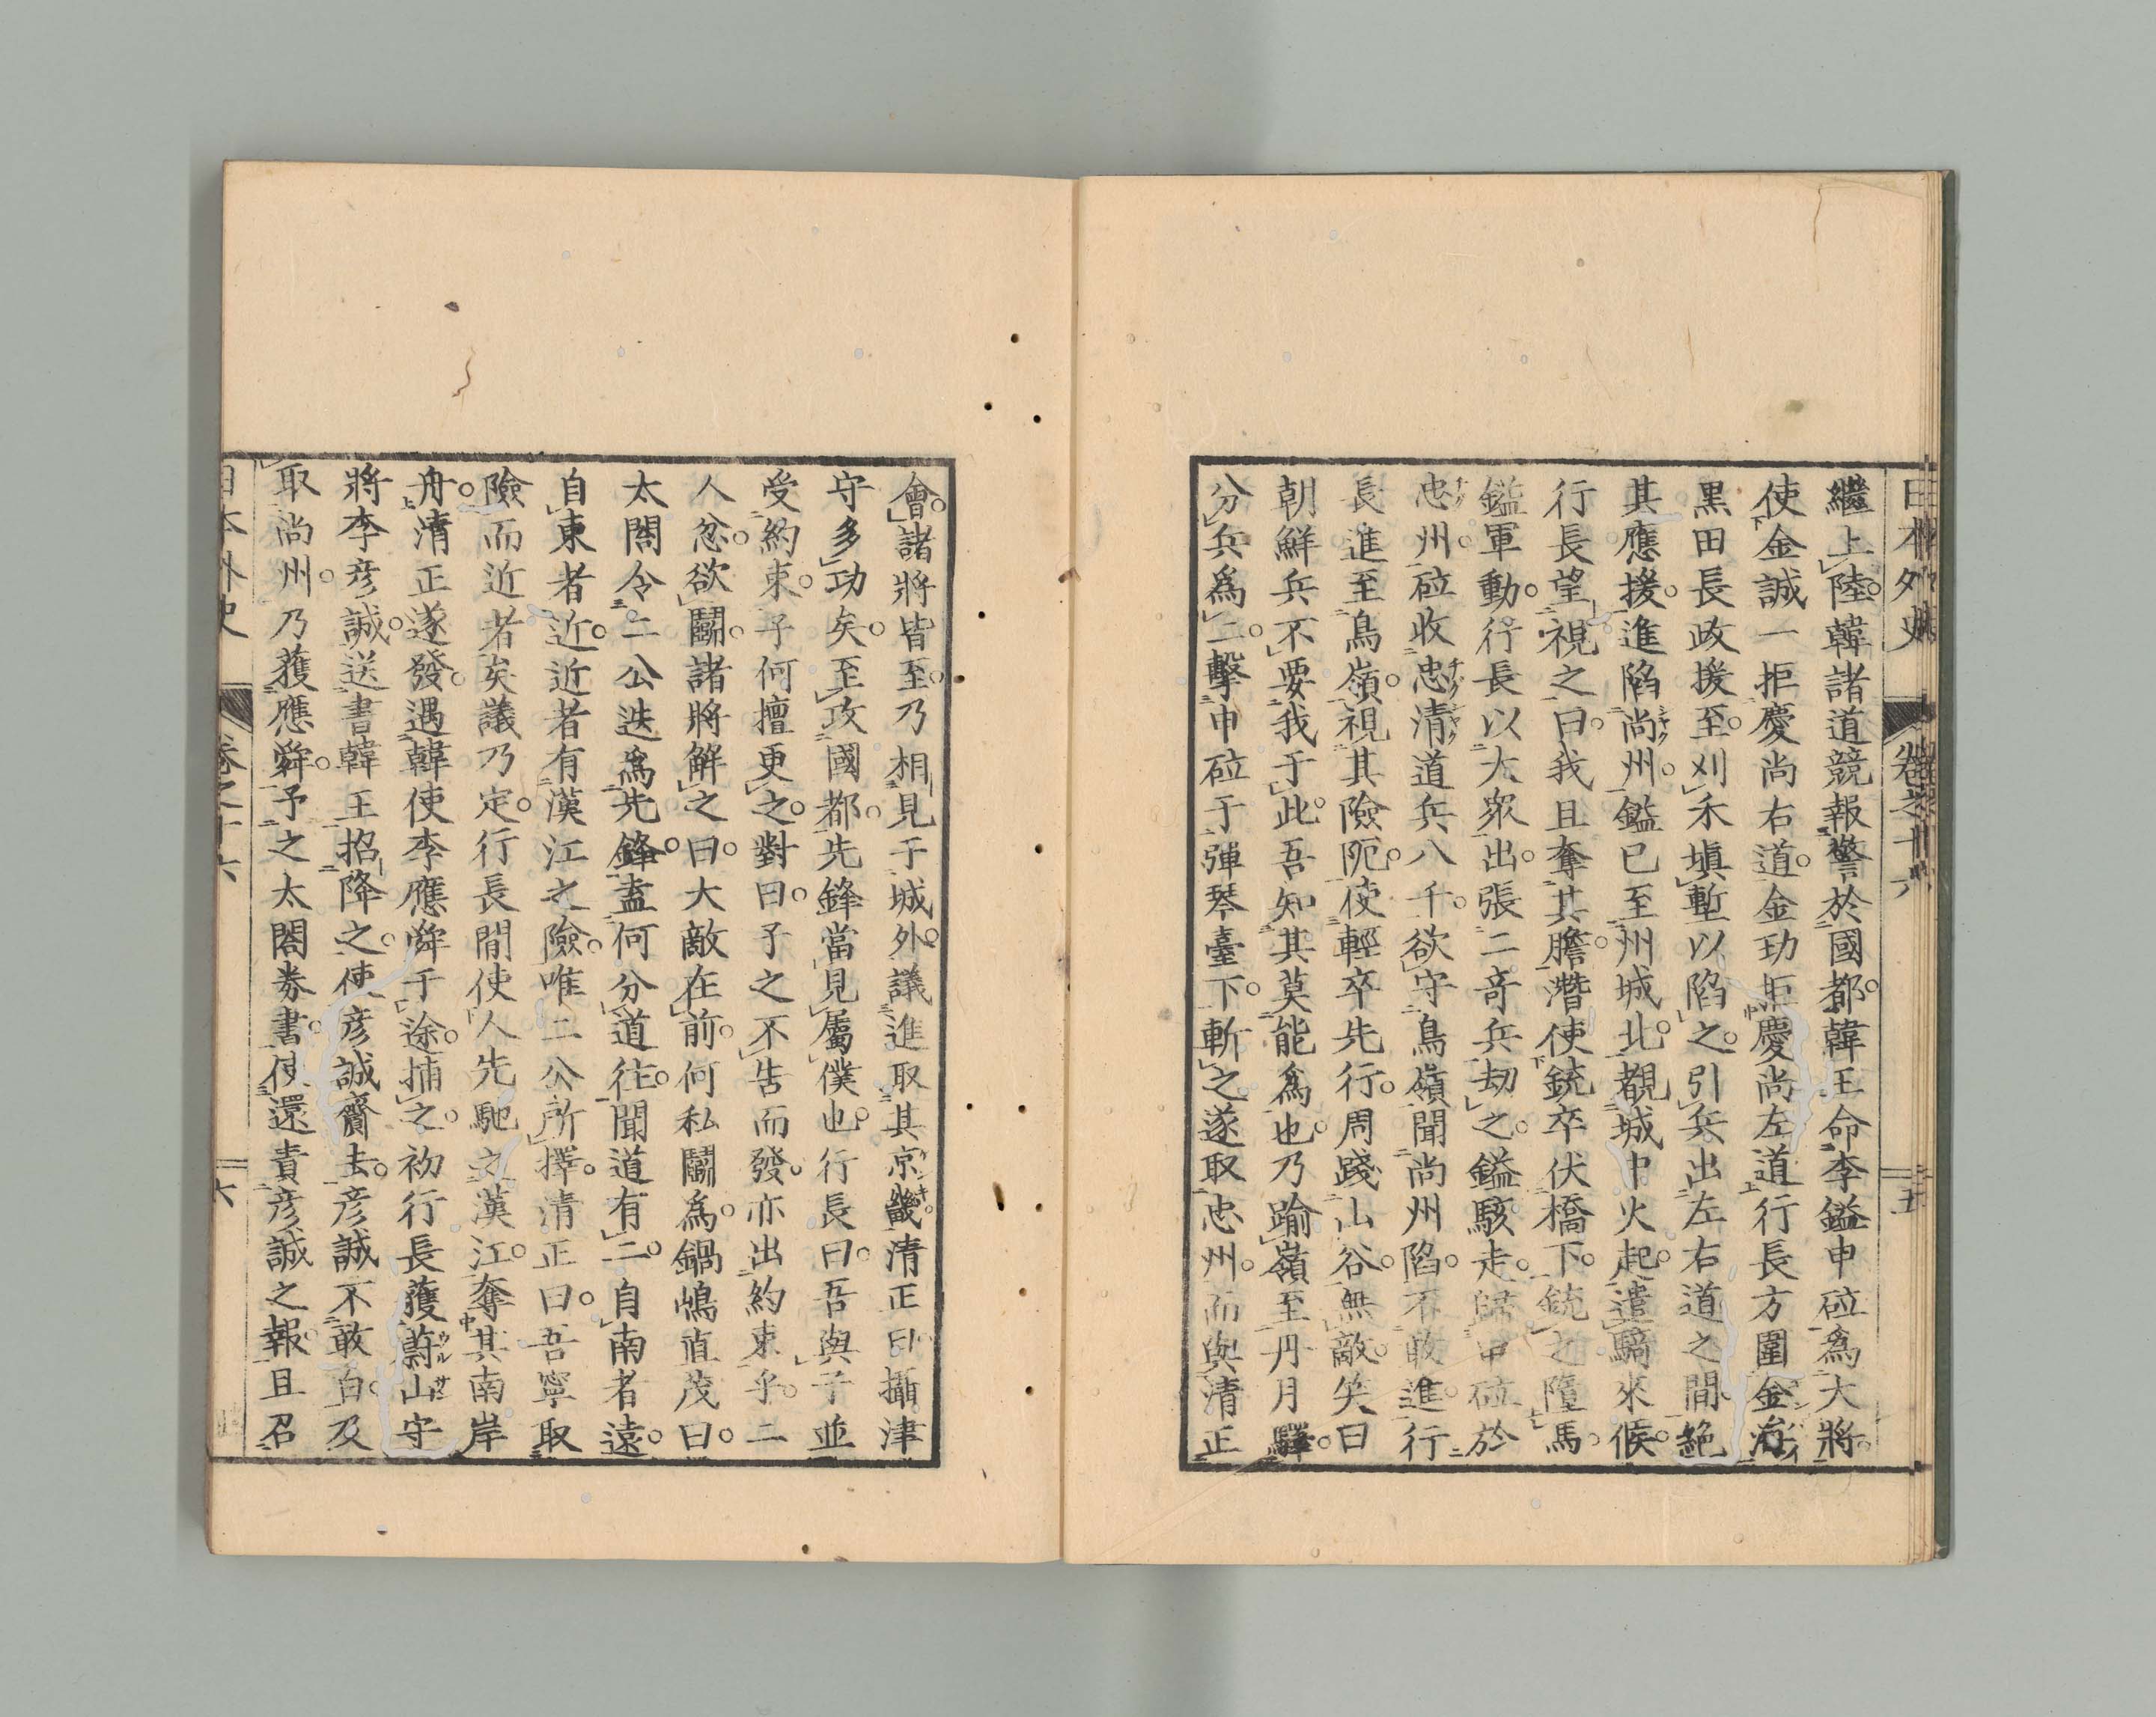 日本外史 卷之十六 五
繼上陸。韓諸道競報警於國都。韓王命李鎰申砬爲大將。
使金誠一拒慶尚右道。金玏拒慶尚左道。行長方圍金海。
黒田長政援至。刈禾塡塹以陷之。引兵出左右道之間絶
其應援。進陷尚州。鎰已至州城北。覩城中火起。遣騎來候。
行長望視之曰。我且奪其膽。潛使銃卒伏橋下。銃之隨馬。
鎰軍動。行長以大衆出。張二奇兵劫之。鎰駭走。歸申砬於
忠州。砬收忠清道兵八千。欲守鳥嶺。聞尚州陷。不敢進。行
長進至鳥嶺。視其險阨。使輕卒先行。周踐山谷。無敵。笑曰
朝鮮兵不要我于此。吾知其莫能爲也。乃踰嶺至丹月驛。
分兵爲二。擊申砬于彈琴臺下。斬之。遂取忠州。而與清正
會。諸將皆至。乃相見于城外。議進取其京畿。清正曰。攝津
守多功矣。至攻國都。先鋒當見屬僕也。行長曰。吾與子並
受約束。子何擅更之。對曰。子之不告而發。亦出約束乎。二
人忿。欲鬭。諸將解之曰。大敵在前。何私鬭爲。鍋嶋直茂曰。
太閤令二公迭爲先鋒。盍何分道往。聞道有二。自南者遠。
自東者近。近者有漢江之險。唯二公所擇。清正曰。吾寧取
險而近者矣。議乃定。行長間使人先馳之漢江。奪其南岸
舟。清正遂發。遇韓使李應舜于途。捕之。初行長獲蔚山守
將李彦誠。送書韓王招降之。使彦誠齎去。彦誠不敢白。及
取尚州。乃獲應舜。予之太閤券書。使還責彦誠之報。且召
日本外史 卷之十六 六